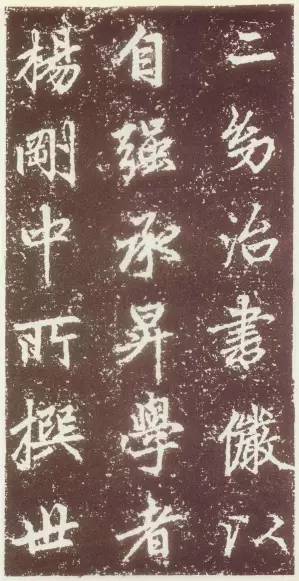 二幼治書儼以
自强承昇學者
楊剛中所撰世